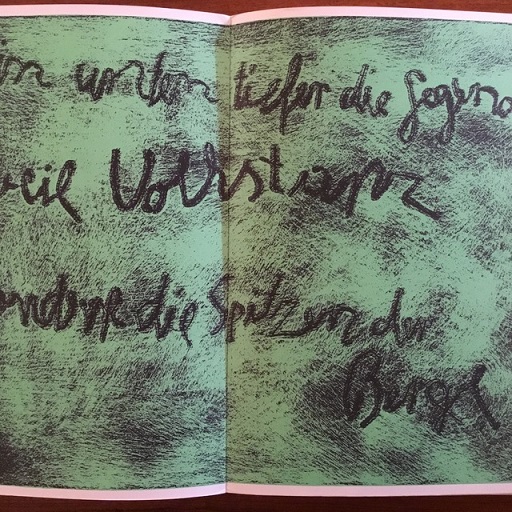 unten tiefer die Gegend
weil Volkstanz
andere die Spitzen der
Berge